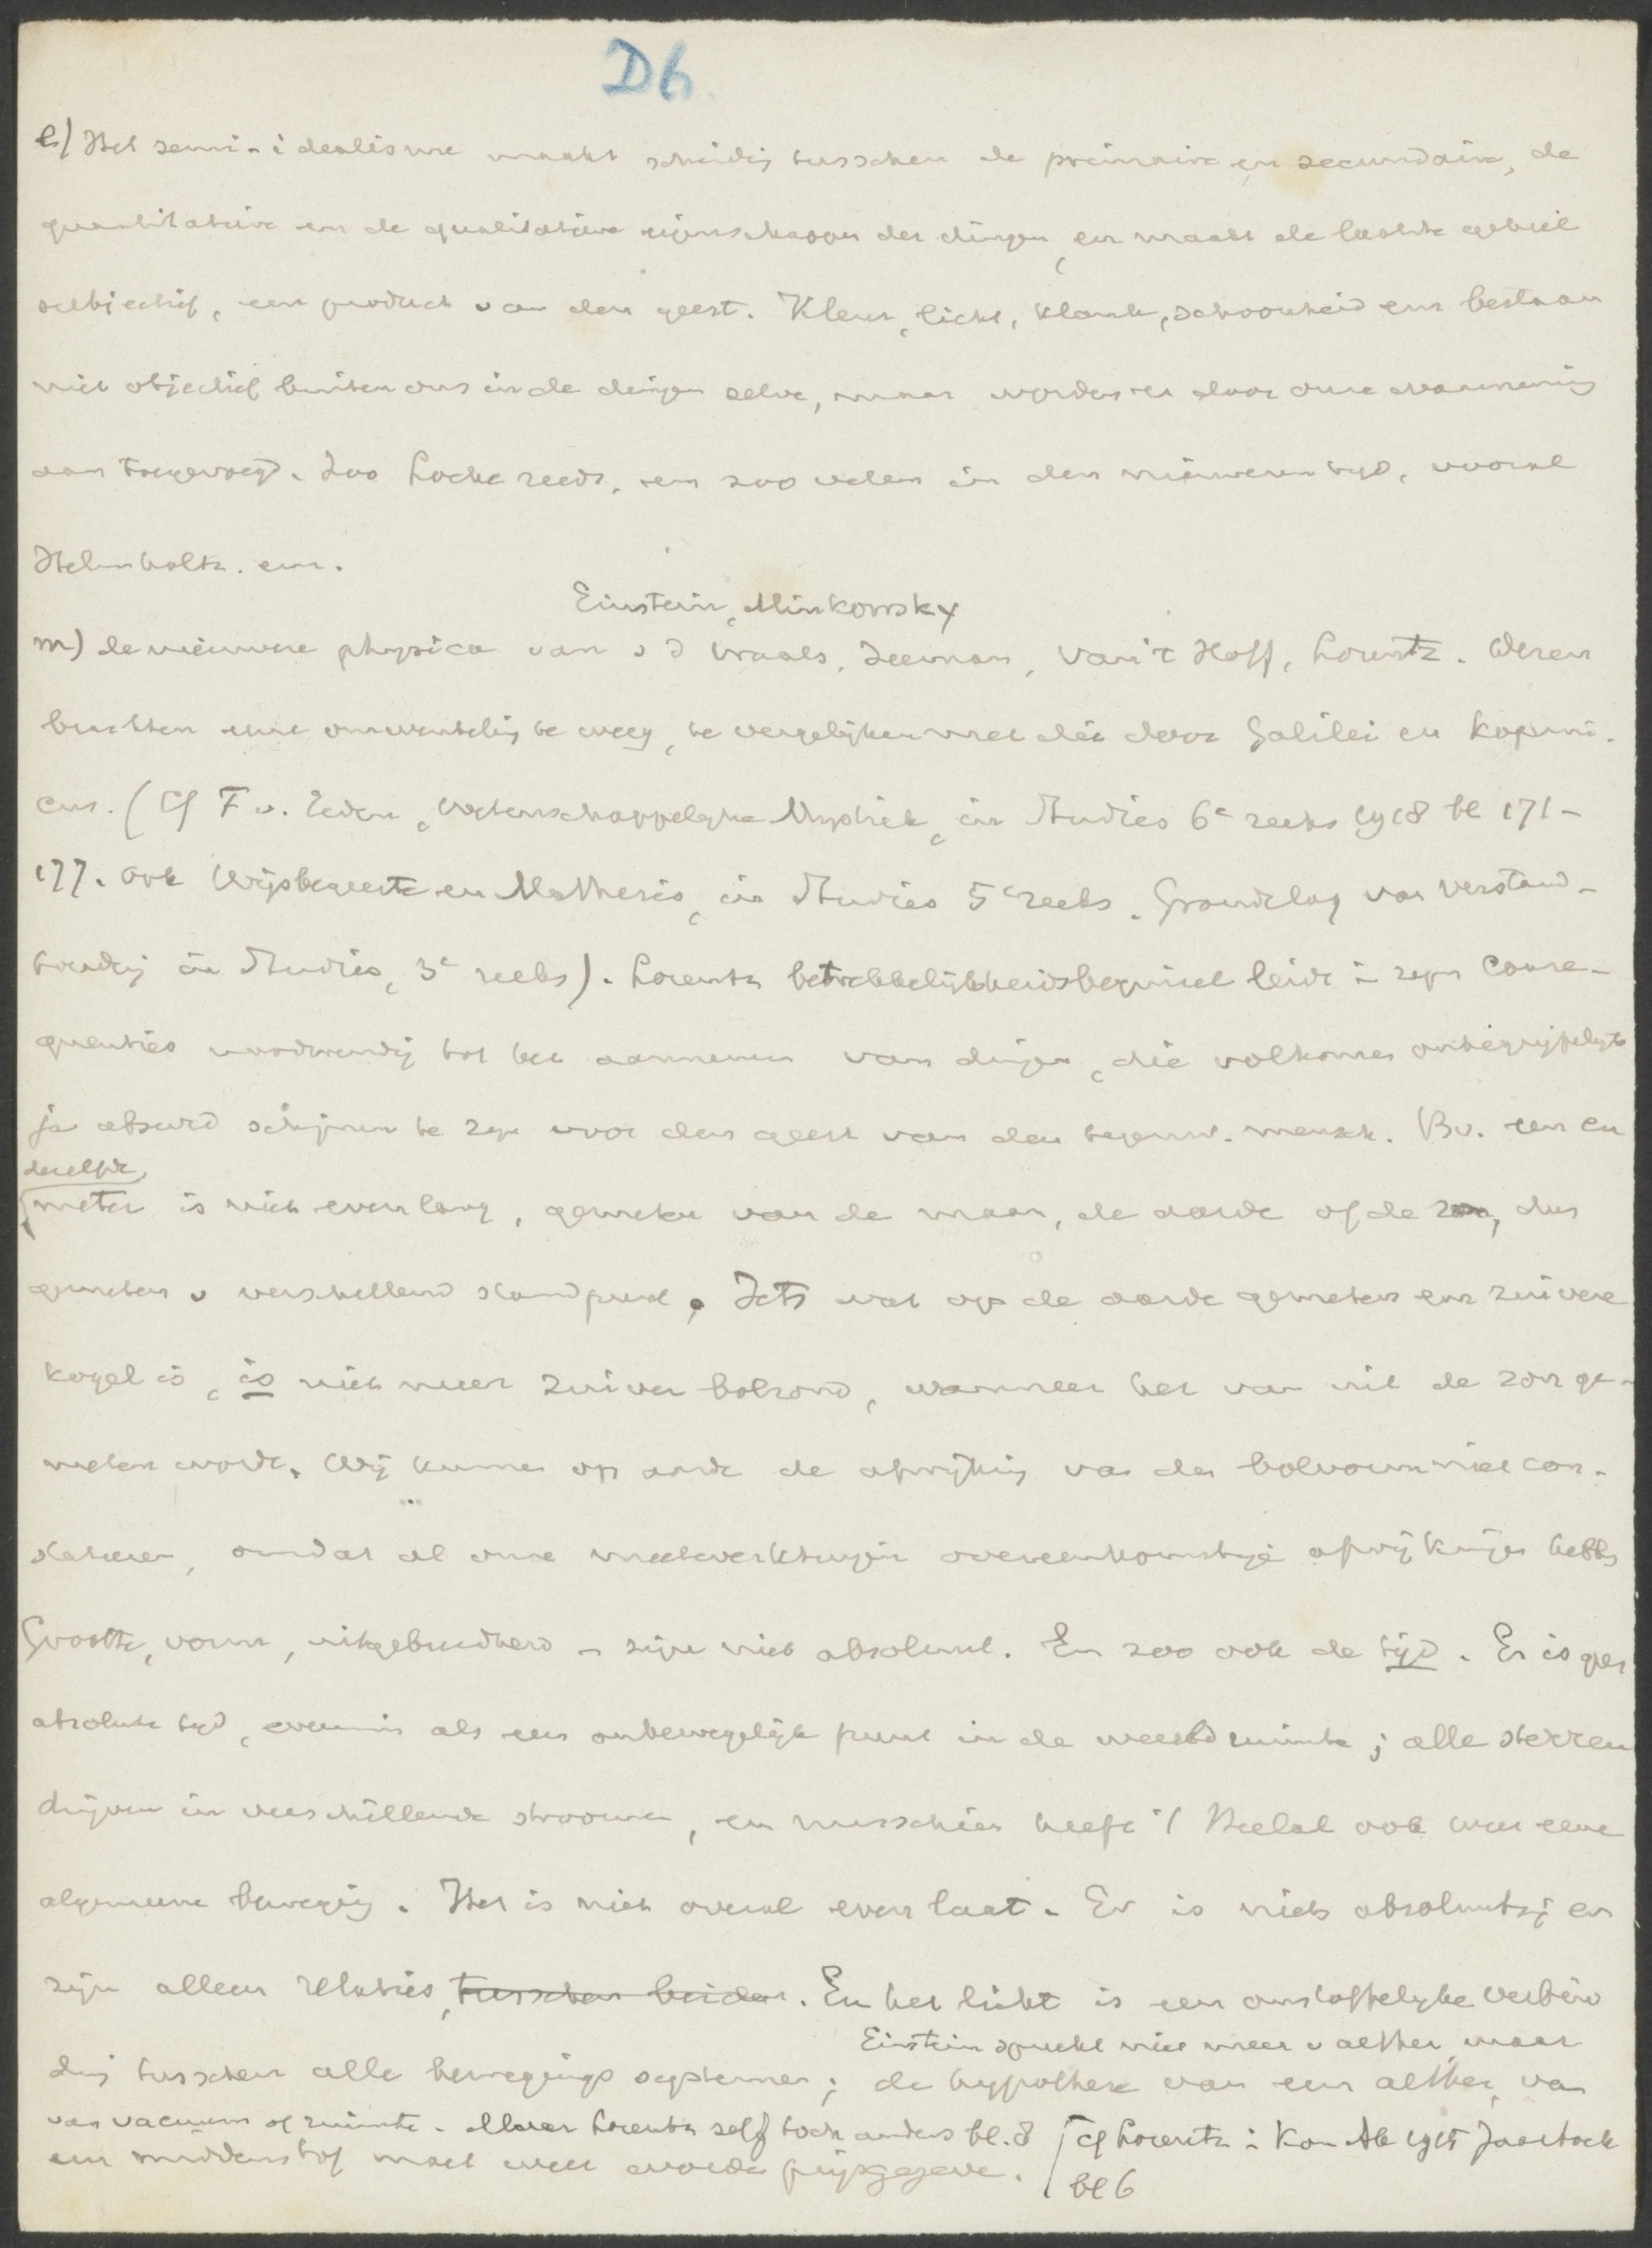 D6
l) Het semi-idealisme maakt scheidig tusschen de primaire en secundaire, de
quantitatieve en de qualitatieve eigenschappen der dingen, en maakt de laatste geheel
subjectief, een product van den geest. Kleur, licht, klank, schoonheid enz bestaan
niet objectief buiten ons in de dingen zelve, maar worden er door onze waarneming
aan toegevoegd. Zoo Locke reeds, en zoo velen in den nieuweren tyd, vooral
Helmholtz. enz.
Einstein, Minkowsky
m) de nieuwere physica van v d Waals, Zeeman, van 't Hoff, Lorentz. Dezen
brachten eene omwenteling te weeg, te vergelijken met die door Galilei en Koperni-
cus. (Cf F v. Eeden, Wetenschappelyke Mystiek, in Studies 6e reeks 1918 bl 171-
177. ook Wijsbegeerte en Mathesis, in Studies 5e reeks. Grondslag van Verstand-
houding in Studies, 3e reeks). Lorentz betrekkelijkheidsbeginsel leidt in zyn conse-
quenties noodwendig tot het aannemen van dingen, die volkomen onbegrijpelyk
ja absurd schijnen te zyn voor den geest van den tegenw. mensch. Bv. een en
dezelfde
meter is niet even lang, gemeten van de maan, de aarde of de zon, dus
gemeten v verschillend standpunt. Iets wat op de aarde gemeten een zuivere
kogel is, is niet meer zuiver bolrond, wanneer het van uit de zon ge-
meten wordt. Wij kunnen op aarde de afwijking van den bolvorm niet con-
stateeren, omdat al onze meetwerktuigen overeenkomstige afwijkingen hebben
Grootte, vorm, uitgebreidheid - zijn niet absoluut. En zoo ook de tijd. Er is geen
absolute tyd, evenmin als een onbewegelijk punt in de wereldruimte; alle sterren
drijven in verschillende stroomen, en misschien heeft 't Heelal ook weer eene
algemeene beweging. Het is niet overal even laat. Er is niets absoluuts; er
zijn alleen relaties, tusschen beiden. En het licht is een onstoffelyke verbin
Einstein spreekt niet meer v aether, maar
ding tusschen alle bewegings systemen; de hypothese van een aether, van
van vacuum of ruimte. Maar Lorentz zelf toch anders bl. 8 [cf Lorentz in Kon Ak 1915 Jaarboek
een middenstof moet weer worden prijsgegeven.
bl 6